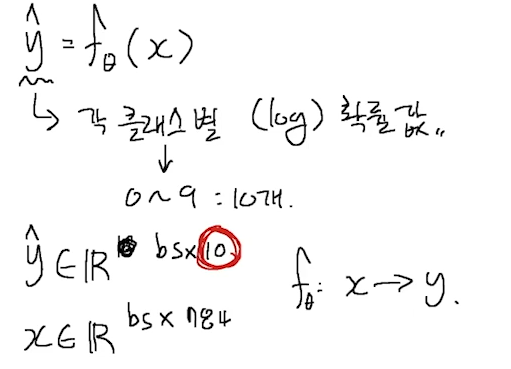 ŷ = f_θ(x)
↳ 각 클래스별 (log) 확률값..
↓
0~9 : 10개.
ŷ ∈ ℝ^{bs×10}
f_θ: x → y.
x ∈ ℝ^{bs×784}